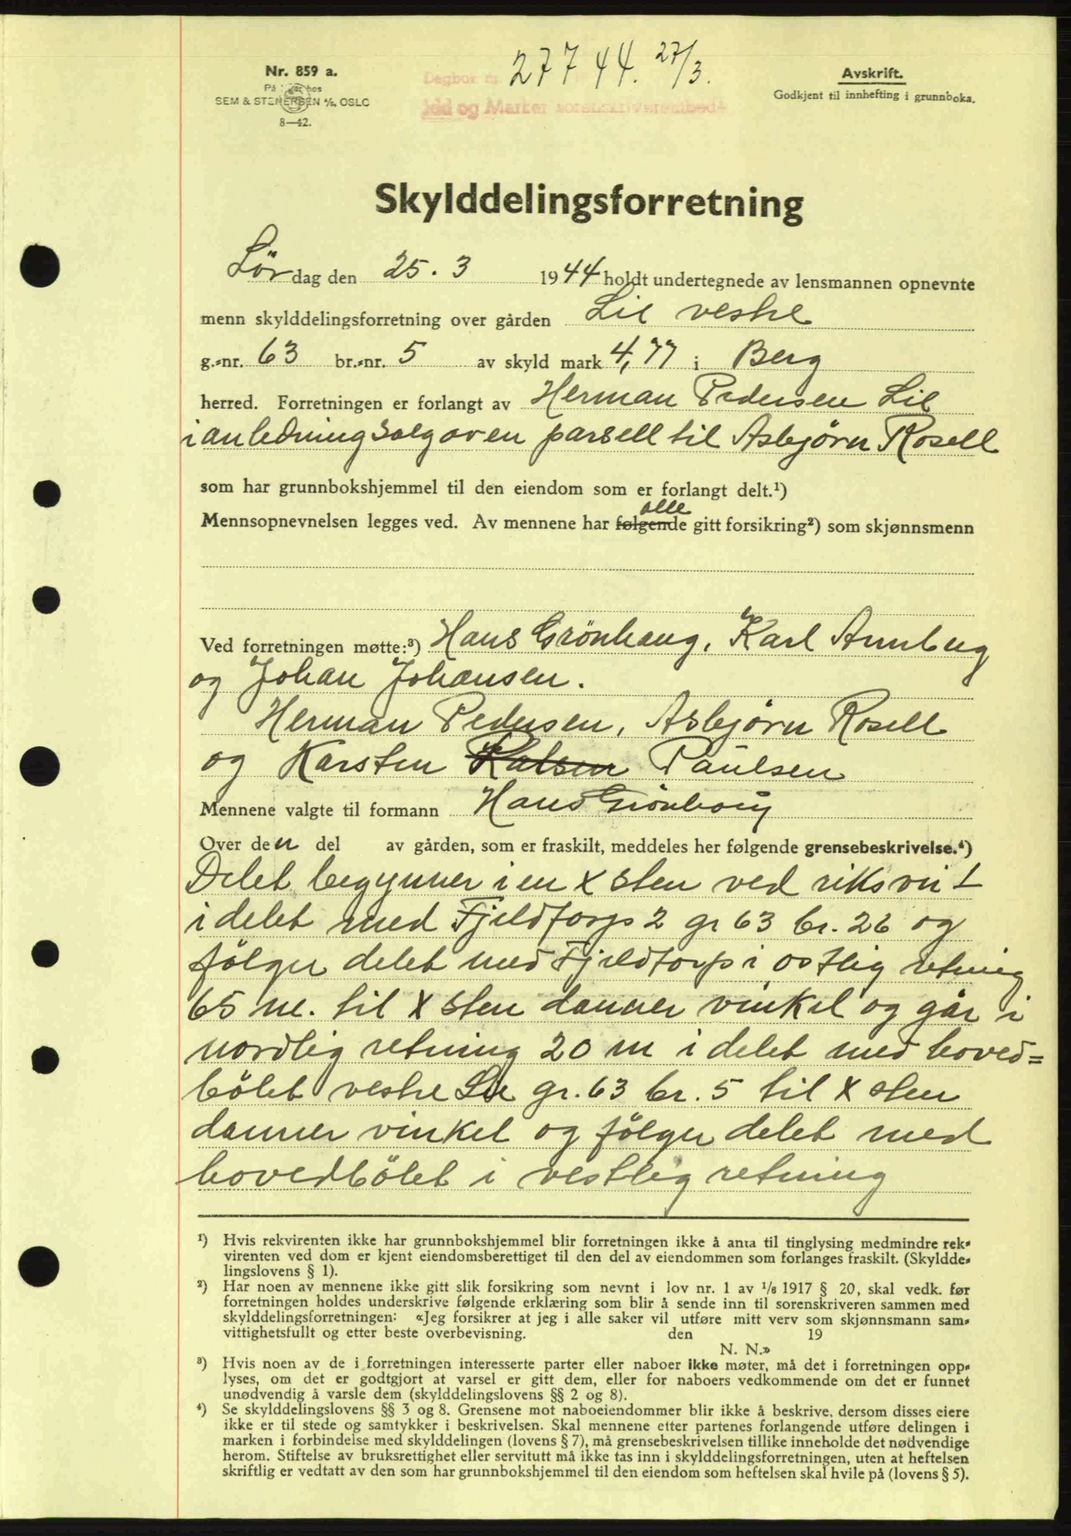 Nr. 859 a.
På lager hos
SEM & STENERSEN A/S, OSLO
8—42.
Dagbok nr. 277 44. 27/3.
Idd og Marker sorenskriverembede
Avskrift.
Godkjent til innhefting i grunnboka.
Skylddelingsforretning
Lørdag den 25. 3 1944 holdt undertegnede av lensmannen opnevnte
menn skylddelingsforretning over gården Lie vestre
g.-nr. 63 br.-nr. 5 av skyld mark 4,77 i Berg
herred. Forretningen er forlangt av Herman Pedersen Lie
i anledning salg av en parsell til Asbjørn Rosell
som har grunnbokshjemmel til den eiendom som er forlangt delt.¹)
alle
Mennsopnevnelsen legges ved. Av mennene har følgende gitt forsikring²) som skjønnsmenn
Ved forretningen møtte:³) Hans Grönhaug, Karl
og Johan Johansen.
Herman Pedersen, Asbjørn Rosell
og Karsten Paulsen
Mennene valgte til formann Hans Grönhaug
Over den del av gården, som er fraskilt, meddeles her følgende grensebeskrivelse.⁴)
Delet begynner i en x sten ved riksvei 1
i delet med Fjeldtorp 2 gr 63 br. 26 og
følger delet med Fjeldtorp i ostlig retning
65 m. til x sten danner vinkel og går i
nordlig retning 20 m i delet med hoved=
bölet vestre Lie gr. 63 br. 5 til x sten
danner vinkel og følger delet med
hovedbölet i vestlig retning
¹) Hvis rekvirenten ikke har grunnbokshjemmel blir forretningen ikke å anta til tinglysing medmindre rek-
virenten ved dom er kjent eiendomsberettiget til den del av eiendommen som forlanges fraskilt. (Skyldde-
lingslovens § 1).
²) Har noen av mennene ikke gitt slik forsikring som nevnt i lov nr. 1 av 1/6 1917 § 20, skal vedk. før
forretningen holdes underskrive følgende erklæring som blir å sende inn til sorenskriveren sammen med
skylddelingsforretningen: «Jeg forsikrer at jeg i alle saker vil utføre mitt verv som skjønnsmann sam-
vittighetsfullt og etter beste overbevisning. den 19
N. N.»
³) Hvis noen av de i forretningen interesserte parter eller naboer ikke møter, må det i forretningen opp-
lyses, om det er godtgjort at varsel er gitt dem, eller for naboers vedkommende om det er funnet
unødvendig å varsle dem (skylddelingslovens §§ 2 og 8).
⁴) Se skylddelingslovens §§ 3 og 8. Grensene mot naboeiendommer blir ikke å beskrive, dersom disses eiere
ikke er til stede og samtykker i beskrivelsen. Skal mennene etter partenes forlangende utføre delingen i
marken i forbindelse med skylddelingen (lovens § 7), må grensebeskrivelsen tillike inneholde det nødvendige
herom. Stiftelse av bruksrettighet eller servitutt må ikke tas inn i skylddelingsforretningen, uten at heftelsen
skriftlig er vedtatt av den som har grunnbokshjemmel til den eiendom som heftelsen skal hvile på (lovens § 5).